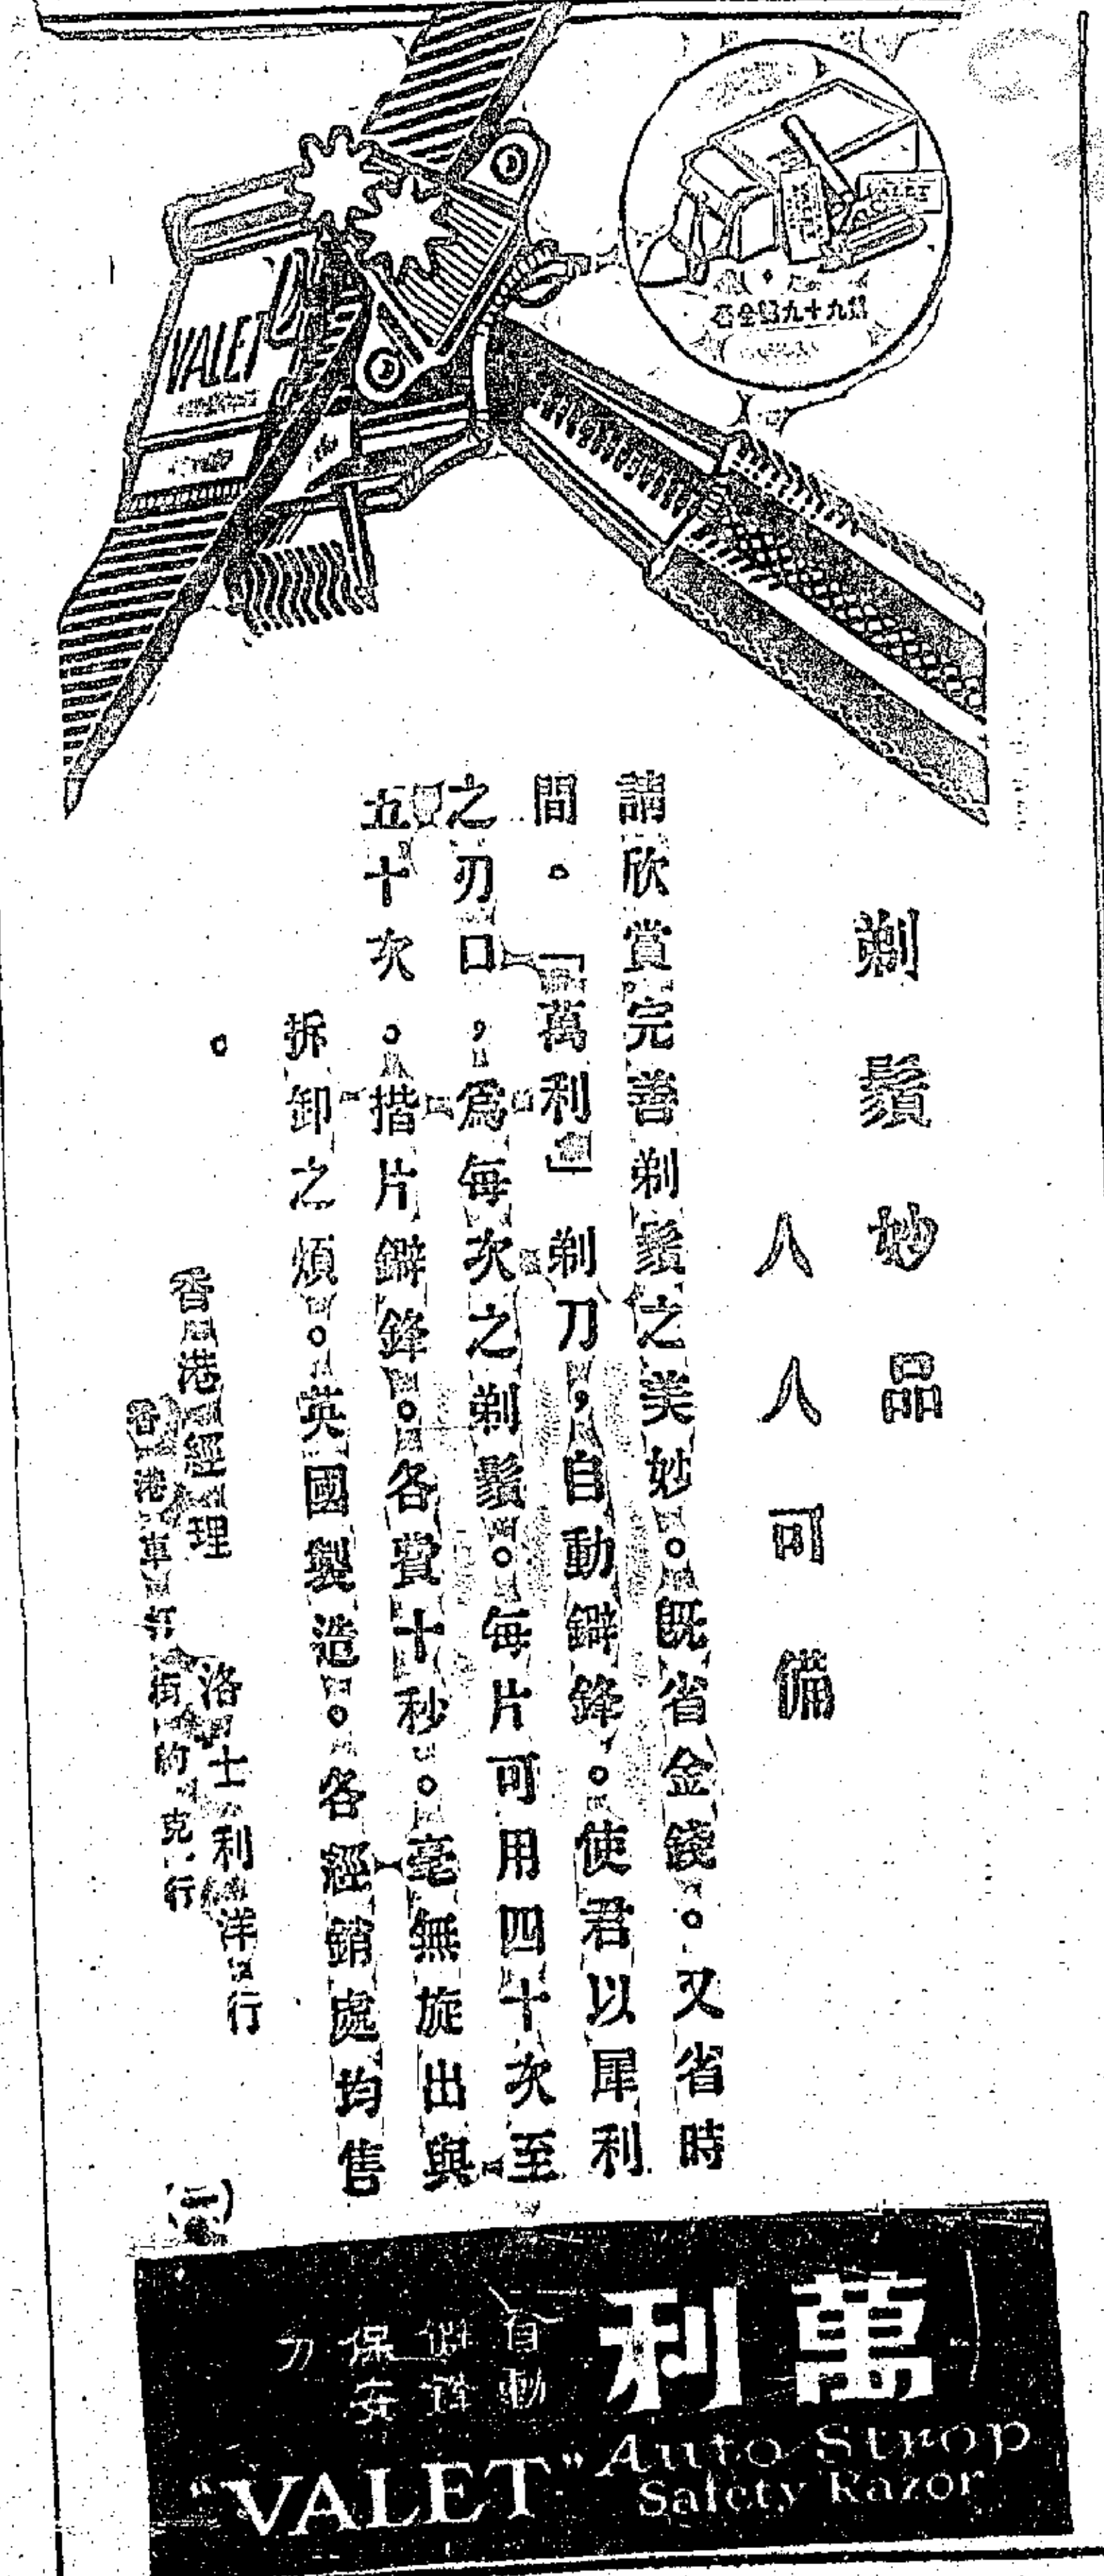 剃鬚妙品
人人可備
請欣賞完善剃鬚之美妙。既省金錢。又省時
間。「萬利」剃刀，自動鐴鋒。使君以犀利
之刃口，爲每次之剃鬚。每片可用四十次至
五十次。揩片鐴鋒。各費十秒。毫無旋出與
拆卸之煩。英國製造。各經銷處均售
。
香港經理 洛士利洋行
香港 打街 克行
VALET
萬利
自動 保安 刀
"VALET" Auto Strop
Safety Razor